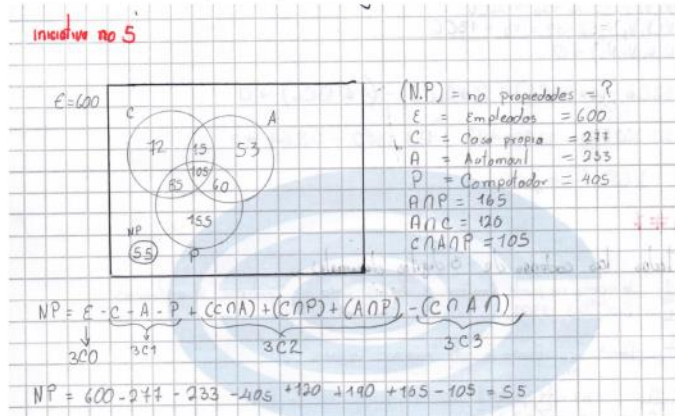 iniciativa no 5
E=600
C
A
72
15
53
105
85
60
155
NP
55
P
(N.P) = no propiedades = ?
E = Empleados = 600
C = Casa propia = 277
A = Automovil = 233
P = Computador = 405
A∩P = 165
A∩C = 120
C∩A∩P = 105
NP = E - C - A - P + (C∩A) + (C∩P) + (A∩P) - (C∩A∩)
3C0
3C1
3C2
3C3
NP = 600 - 277 - 233 - 405 +120 +190 +165 - 105 = 55